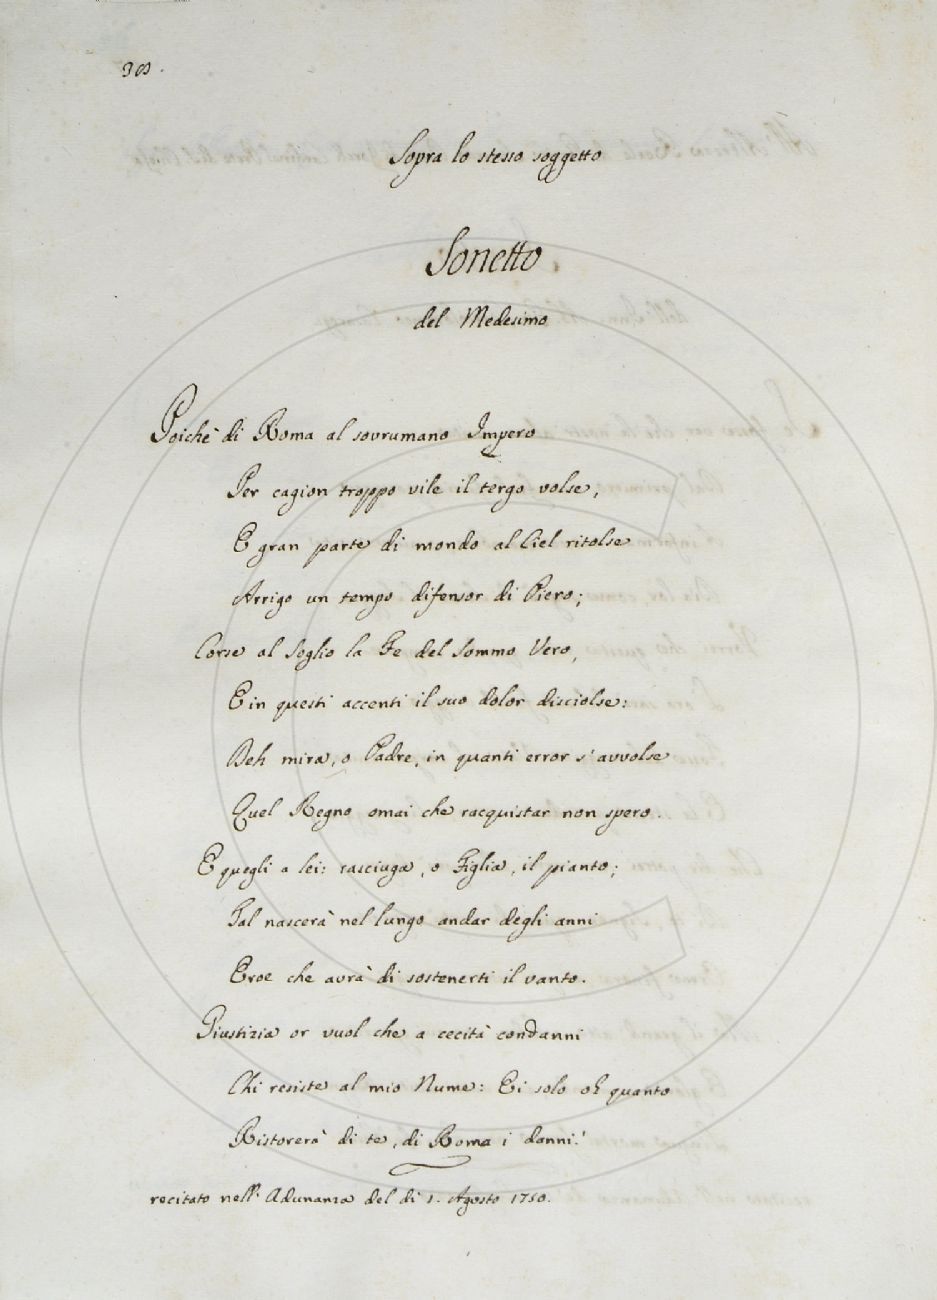 38.
Sopra lo stesso soggetto
Sonetto
del Medesimo
Poichè di Roma al sovrumano Impero
Per cagion troppo vile il tergo volse,
E gran parte di mondo al Ciel ritolse
Arrigo un tempo difensor di Piero;
Corse al Soglio la Fe del Sommo Vero,
E in questi accenti il suo dolor disciolse:
Deh mira, o Padre, in quanti error s'avvolse
Quel Regno omai che racquistar non spero.
E quegli a lei: rasciuga, o Figlia, il pianto;
Tal nascerà nel lungo andar degli anni
Eroe che avrà di sostenerti il vanto.
Giustizia or vuol che a cecità condanni
Chi resiste al mio Nume: Ei solo oh quanto
Ristorerà di te, di Roma i danni!
recitato nell'Adunanza del dì 1. Agosto 1750.